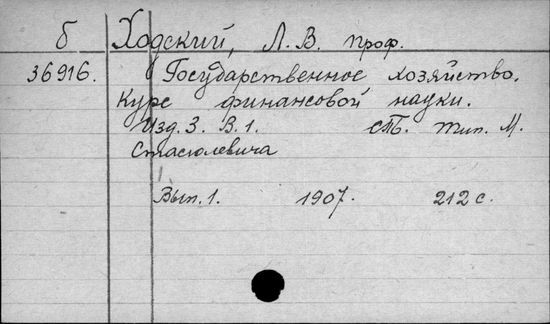 б Ходский, Л. В. проф.
36916. Государственное хозяйство.
Курс финансовой науки.
Изд. 3. В. 1. СПб. тип. М.
Стасюлевича
Вып. 1. 1907. 212 с.